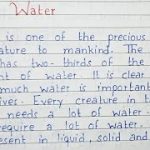 Water
is one of the precious
ature to mankind. The
has two-thirds of the
nt of water. It is clear
much water is important
ives. Every creature in t
needs a lot of water
require a lot of water.
esent in liquid, solid and